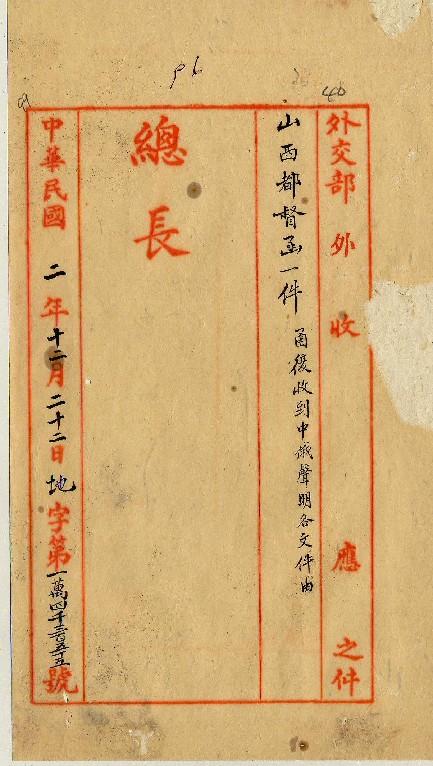 40
外交部外收應之件
山西都督函一件 函復收到中俄聲明各文件由
總長
中華民國二年十二月二十二日地字第一萬四千三百五十五號